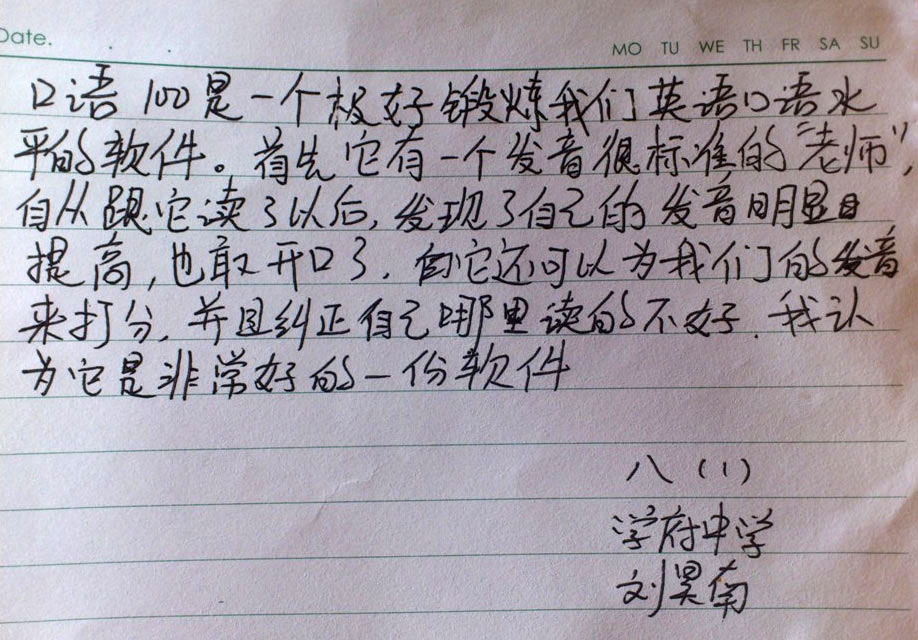 Date.
MO TU WE TH FR SA SU
口语100是一个极好锻炼我们英语口语水
平的软件。首先它有一个发音很标准的"老师",
自从跟它读了以后,发现了自己的发音明显
提高,也敢开口了.它还可以为我们的发音
来打分,并且纠正自己哪里读的不好.我认
为它是非常好的一份软件
八(1)
学府中学
刘昊南